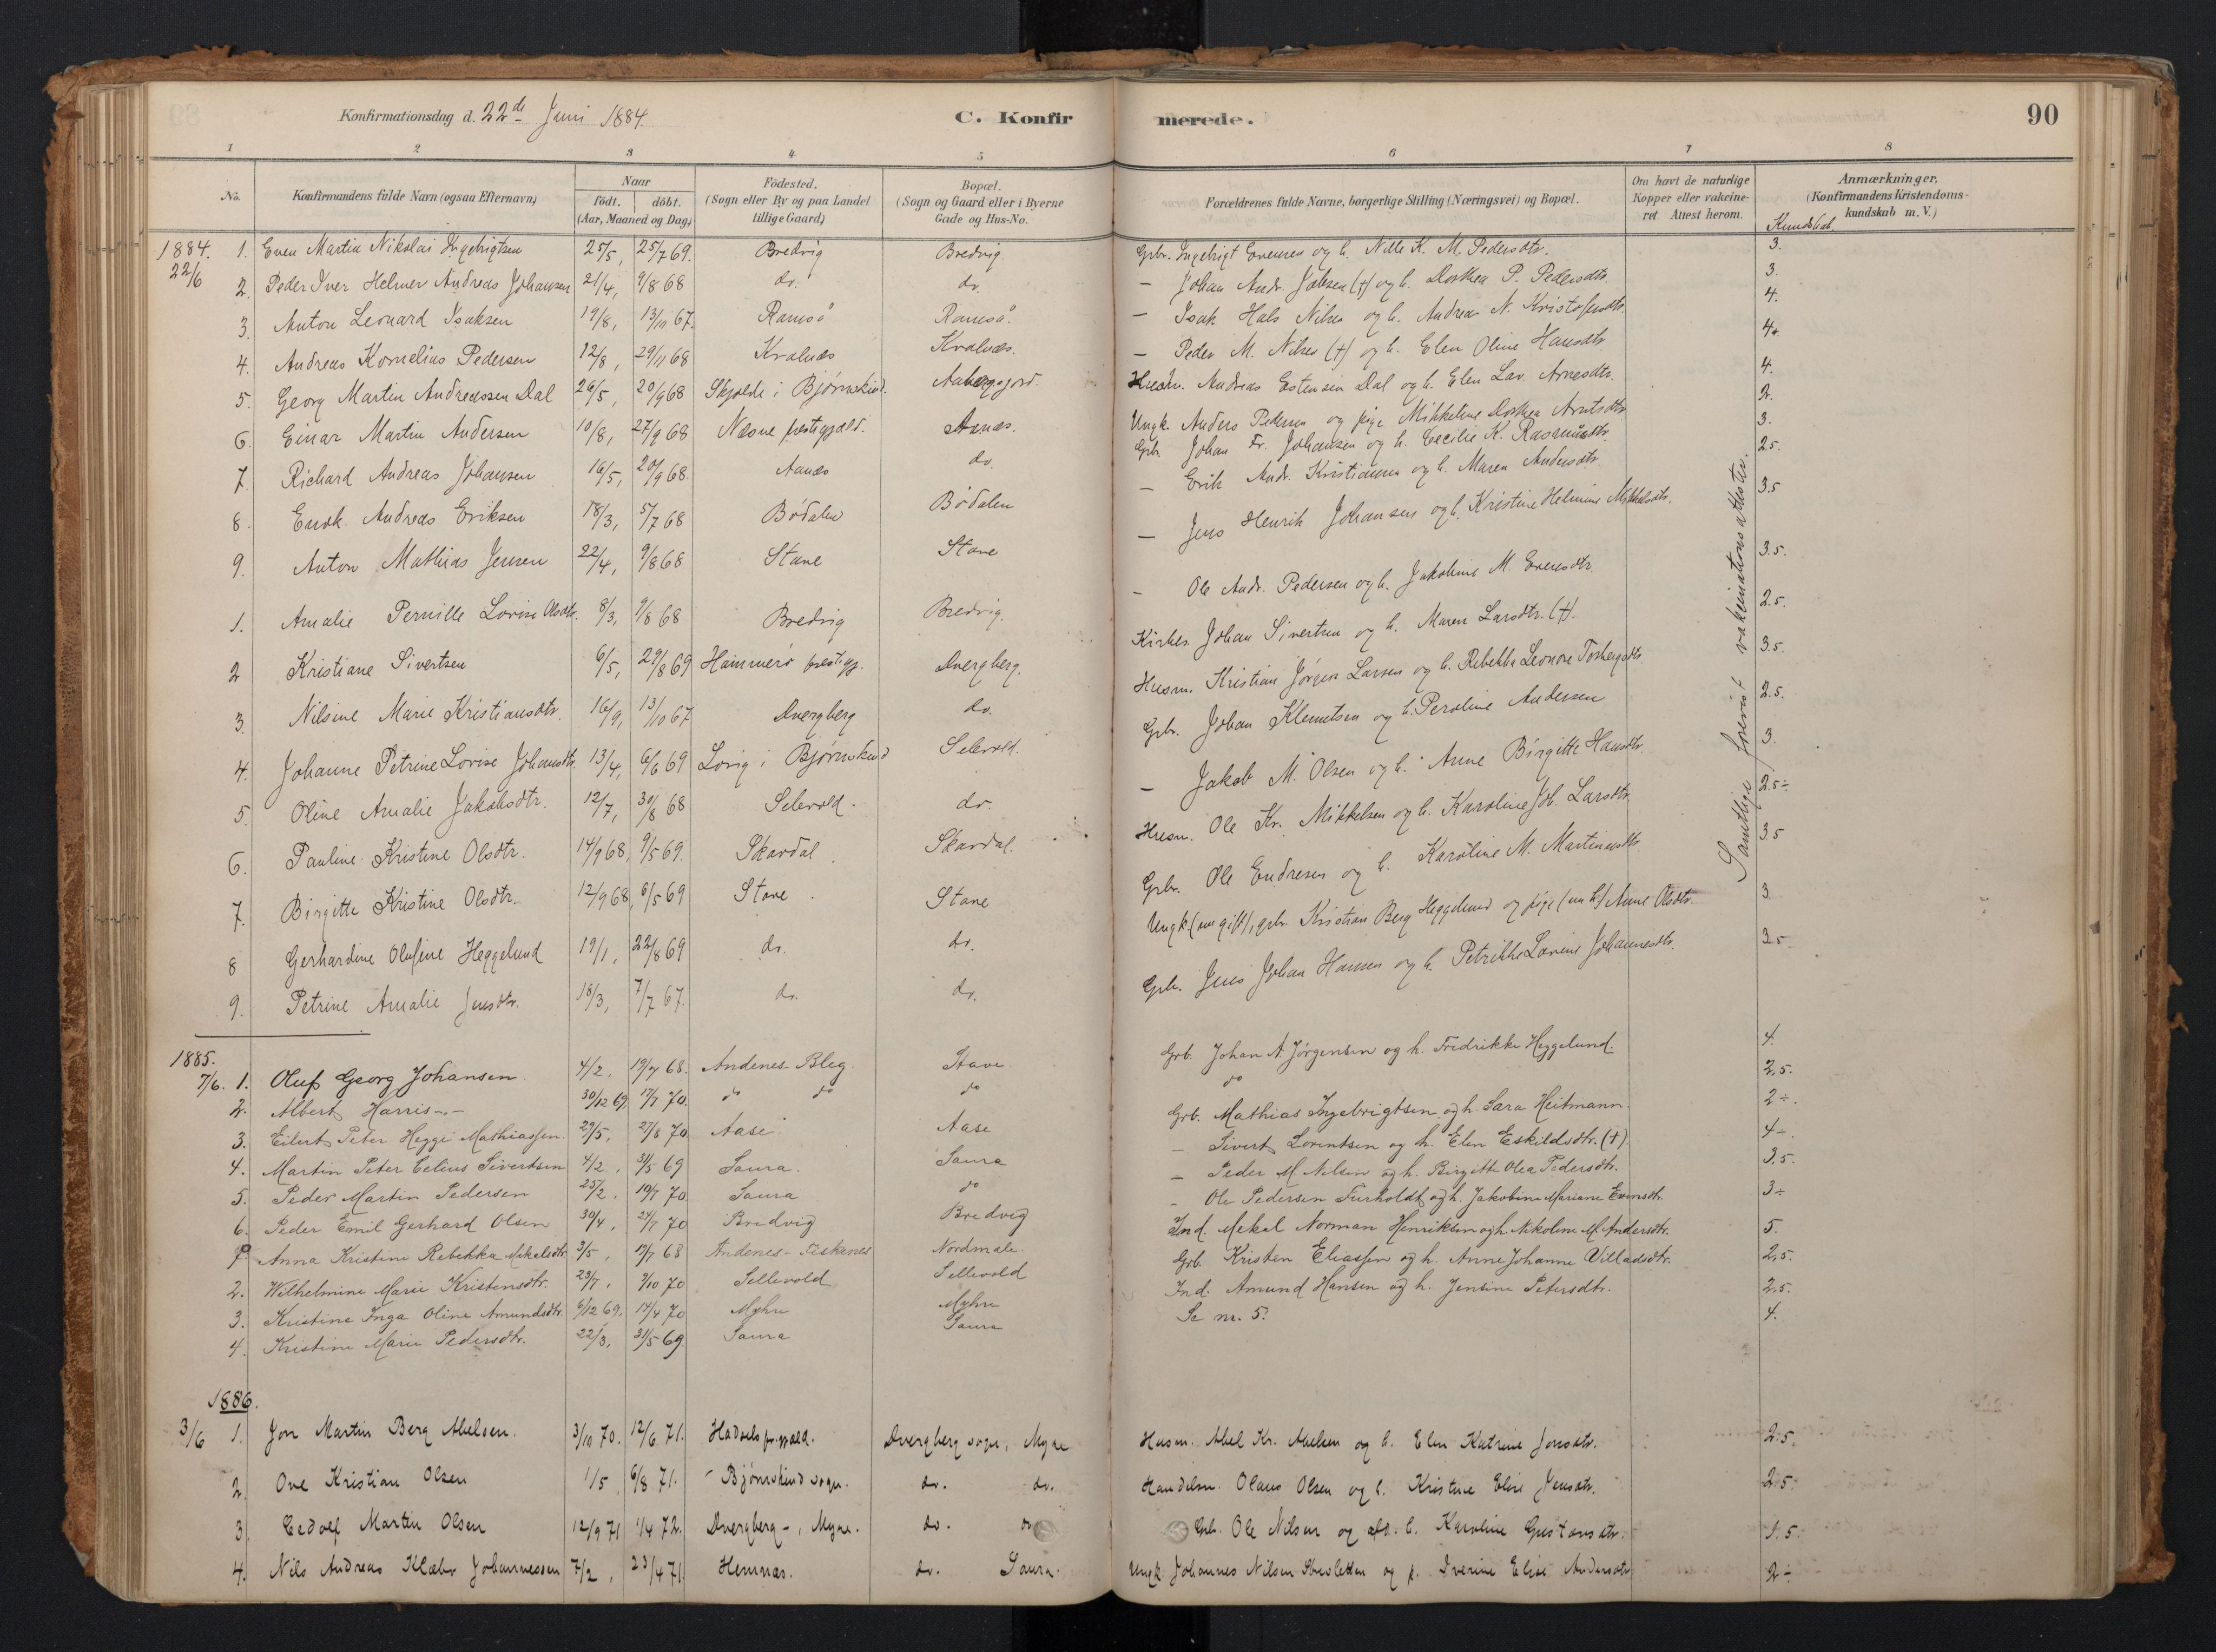 Konfirmationsdag d. 22de Juni 1884
C. Konfirmerede.
90
1 2 3 4 5 6 7 8
No. Konfirmandens fulde Navn (ogsaa Efternavn)
Naar født. døbt. (Aar, Maaned og Dag)
Fødested. (Sogn eller By og paa Landet tillige Gaard)
Bopæl. (Sogn og Gaard eller i Byerne Gade og Hus-No.
Forældrenes fulde Navne, borgerlige Stilling (Næringsvei) og Bopæl.
Om havt de naturlige Kopper eller vakcineret. Attest herom.
Anmærkninger. (Konfirmandens Kristendomskundskab m. V.)
Kundskab.
1884. 22/6
1. Even Martin Nikolai Ingebrigtsen 25/5, 25/7 69. Bredvig Bredvig Grbr. Ingebrigt Evensen og h. Nille K. M. Pedersdtr. 3.
2. Peder Iver Helmer Andreas Johansen 21/4, 9/8 68 do. do. – Johan Andr. (†) og h. Dorthea P. Pedersdtr. 3.
3. Anton Leonard Isaksen 19/8, 13/10 67. Ramså Ramså. – Isak Hals Nilsen og h. Andrea N. Kristofersdtr. 4.
4. Andreas Kornelius Pedersen 12/8, 29/11 68 Kvalnæs Kvalnæs. – Peder M. Nilsen (†) og h. Elen Oline Hansdtr. 4.
5. Georg Martin Andreassen Dal 26/5, 20/9 68 Skjolde i Bjørnskind. Husm. Andreas Estensen Dal og h. Elen Lav. Arnesdtr. 4.
6. Einar Martin Andersen 10/8, 27/9 68 Næsne prestegjæld. Aanæs. Ungk. Anders Pedersen og pige Mikkeline Dorthea Arntsdtr. 2.
7. Richard Andreas Johansen 16/5, 20/9 68. Aanæs do. Grb. Johan Fr. Johansen og h. Cecilie K. Rasmusdtr. 3.
8. Enok Andreas Eriksen 18/3, 5/7 68 Bødalen Bødalen – Erik Andr. Kristiansen og h. Maren Andersdtr. 2.5.
9. Anton Mathias Jensen 22/4, 9/8 68 Stave Stave – Jens Henrik Johansen og h. Kristine Helmine Mikkelsdtr. 3.5
1. Amalie Pernille Lovise Olsdtr. 8/3, 9/8 68 Bredvig Bredvig. – Ole Andr. Pedersen og h. Jakobine M. Evensdtr. 3.5.
2 Kristiane Sivertsen 6/5, 29/8 69 Hammerø prestegj. Dvergberg. Kirkes. Johan Sivertsen og h. Maren Larsdtr. (†). 2.5.
3. Nilsine Marie Kristiansdtr. 16/9, 13/10 67 Dvergberg do. Husm. Kristian Jørgen Larsen og h. Rebekka Leonore 3.5.
4. Johanne Petrine Lovise Johansdtr. 13/4, 6/6 69 Lovig i Bjørnskind Selevold. Grbr. Johan Klemetsen og h. Peroline Andersen 2.5.
5. Oline Amalie Jakobsdtr. 12/7, 30/8 68 Selevold. do. – Jakob M. Olsen og h. Anne Birgitte Hansdtr. 3.
6. Pauline Kristine Olsdtr. 14/9 68, 9/5 69. Skardal Skardal. Husm. Ole Kr. Mikkelsen og h. Karoline Joh. Larsdtr. 2.5÷
7. Birgitte Kristine Olsdtr. 12/9 68, 6/5 69 Stave Stave Grbr. Ole Endresen og h. Karoline M. Martinusdtr. 3.5
8 Gerhardine Olufine Heggelund 19/1, 22/8 69 do. do. Ungk. (nu gift), grbr. Kristian Berg Heggelund og pige (nu h.) Anne Olsdtr. 3
9. Petrine Amalie Jensdtr. 18/3, 7/7 67. do. do. Grb. Jens Johan Hansen og h. Petrikke Lovine Johannesdtr. 3.5.
Samtlige forevist vakcinationsattester.
1885. 7/6.
1. Oluf Georg Johansen 4/2, 19/7 68. Andenes Bleg Stave Grb. Johan A. Jørgensen og h. Fredrikke Heggelund. 4.
2. Albert Harris -.- 30/12 69. 17/7 70. do do do do 2,5.
3. Eilert Peter Hegge Mathiassen 29/5, 27/8 70 Aase Aase Grb. Mathias Ingebrigtsen og h. Sara Heitmann. 2÷.
4. Martin Peter Celius Sivertsen 4/2, 31/5 69 Saura. Saura – Sivert Lorentsen og h. Elen Eskildsdtr. (†) 4÷.
5. Peder Martin Pedersen 25/2, 10/7 70 Saura do – Peder M. Nilsen og h. Birgitte Olea Pedersdtr. 3.5.
6. Peder Emil Gerhard Olsen 30/4, 24/7 70 Bredvig Bredvig – Ole Pedersen Furholdt og h. Jakobine Mariane Evensdtr. 3÷
1. Anna Kristine Rebekka Mikelsdtr. 3/5, 19/7 68 Andenes-Fiskenes Nordmæle. Ind. Mekal Norman Henriksen og h. Nikoline M. Andersdtr. 5.
2. Wilhelmine Marie Kristensdtr. 23/7, 9/10 70 Sellevold Sellevold Grb. Kristen Eliassen og h. Anne Johanne Villadsdtr. 2,5.
3. Kristine Inga Oline Amundsdtr. 6/12 69, 17/4 70 Myhre Myhre Ind. Amund Hansen og h. Jensine Petersdtr. 2.5.
4. Kristine Marie Pedersdtr. 22/3, 31/5 69. Saura Saura Se nr. 5. 4.
1886. 3/6
1. Jon Martin Berg Abelsen. 3/10 70. 12/6 71. Hadsels prgjæld. Dvergberg sogn, Myre Husm. Abel Kr. Abelsen og h. Elen Katrine Jonsdtr. 2.5.
2. Ove Kristian Olsen 1/5, 6/8 71. - Bjørnskind sogn. do. do. Handelsm. Olaus Olsen og h. Kristine Elise Jensdtr. 2.5.
3. Martin Olsen 12/9 71 1/4 72. Dvergberg -, Myre. do. do Grb. Ole Nilsen og afd. h. Karoline Gustavsdtr. 1.5.
4. Nils Andreas Klæbo Johannessen 7/2, 23/4 71. Hemnæs. do. Saura. Ungk. Johannes Nilsen og p. Iverine Elise Andersdtr. 2÷